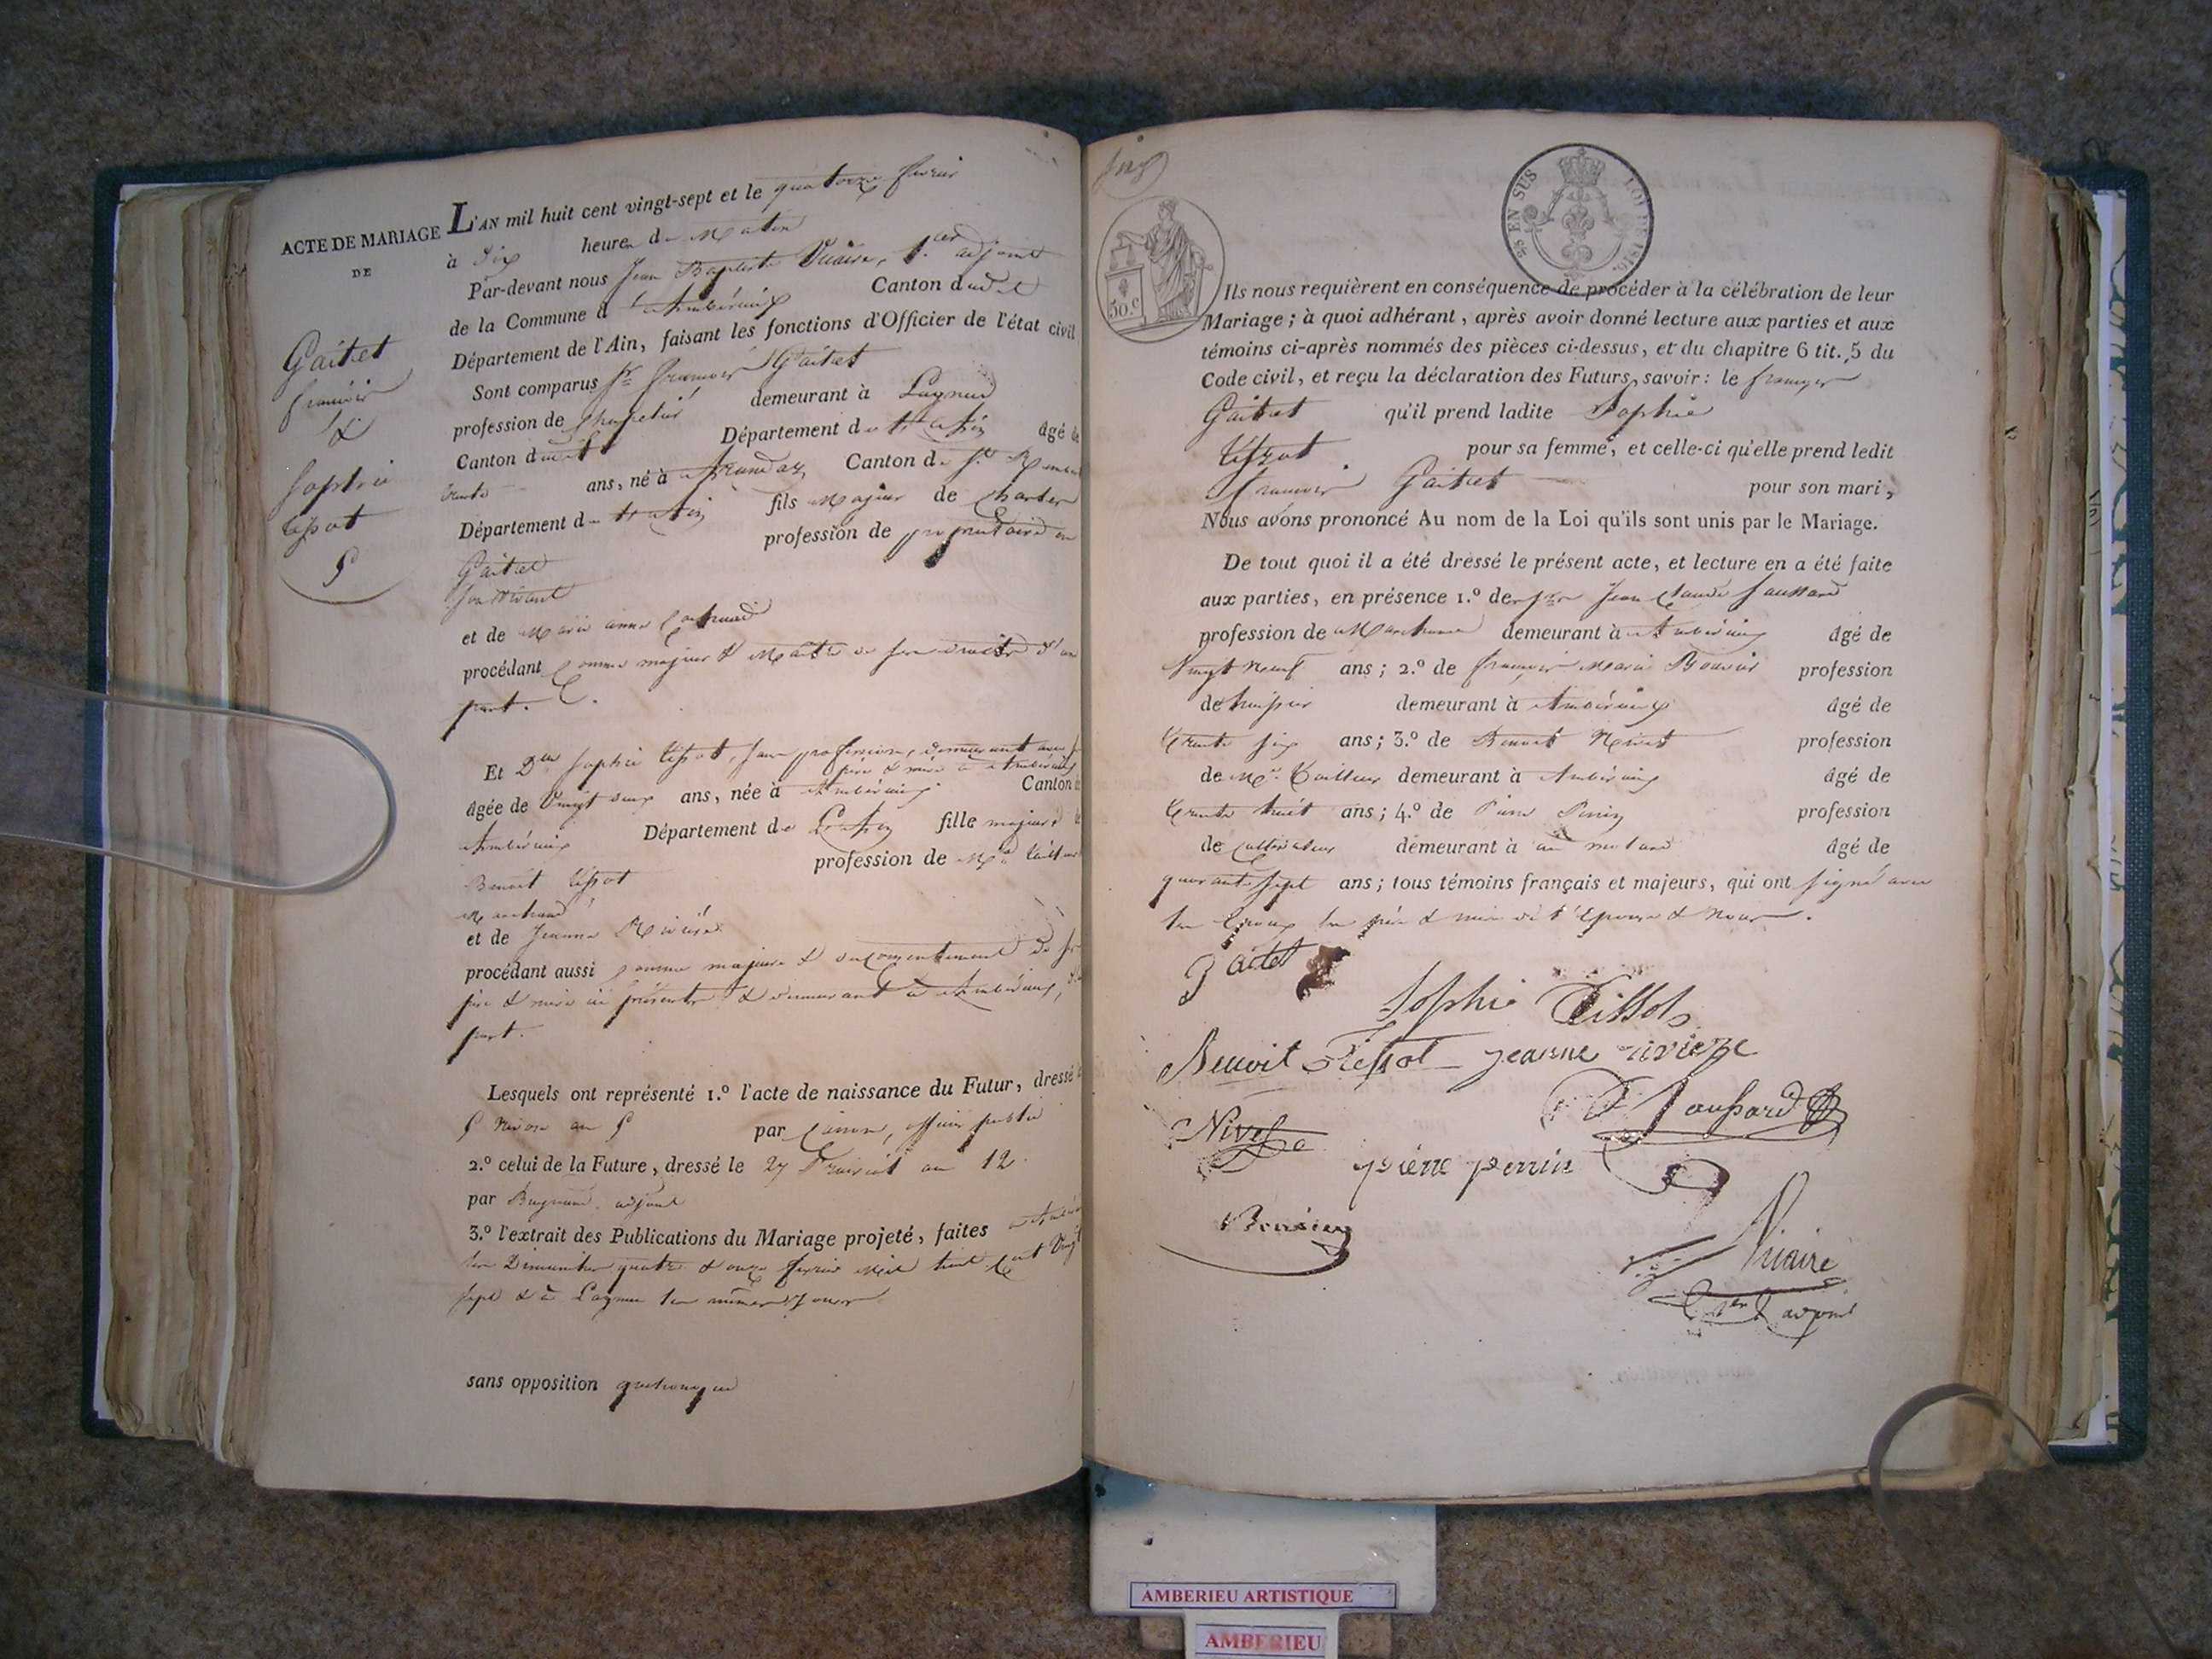 ACTE DE MARIAGE
DE
Gaitet
françois
&
Sophie
tissot
L'AN mil huit cent vingt-sept et le quatorze février
à dix heures du Matin
Par-devant nous Jean Baptiste Vicaire, 1.er adjoint
de la Commune d'Ambérieux Canton dudit
Département de l'Ain, faisant les fonctions d'Officier de l'état civil
Sont comparus Sr. françois Gaitet
profession de demeurant à Lagnieu
Canton dudit Département de l'Ain âgé de
trente ans, né à Arandas Canton de St. Rambert
Département de l'Ain fils Majeur de Charles
Gaitet profession de propriétaire
et de Marie anne
procédant Comme majeur & Maître de ses droits d'une
part.
Et Dlle Sophie tissot, sans profession, demeurant avec ses
père & mère à Ambérieux
âgée de Vingt deux ans, née à Ambérieux Canton d'
Ambérieux Département de L'Ain fille majeure de
Benoit tissot profession de Md. tailleur
Marchand
et de Jeanne Rivière
procédant aussi comme majeure & du consentement de ses
père & mère ici présents & demeurant à Ambérieux, d'autre
part.
Lesquels ont représenté 1.º l'acte de naissance du Futur, dressé le
5 nivose an 5 par officier public
2.º celui de la Future, dressé le 27 an 12
par adjoint
3.º l'extrait des Publications du Mariage projeté, faites à Ambérieux
les Dimanches quatre & onze février Mil huit Cent Vingt
sept & à Lagnieu les mêmes jours
sans opposition quelconque
5 EN SUS LOI DE 1816.
50.c
Ils nous requièrent en conséquence de procéder à la célébration de leur
Mariage; à quoi adhérant, après avoir donné lecture aux parties et aux
témoins ci-après nommés des pièces ci-dessus, et du chapitre 6 tit. 5 du
Code civil, et reçu la déclaration des Futurs, savoir: le françois
Gaitet qu'il prend ladite Sophie
tissot pour sa femme, et celle-ci qu'elle prend ledit
françois Gaitet pour son mari,
Nous avons prononcé Au nom de la Loi qu'ils sont unis par le Mariage.
De tout quoi il a été dressé le présent acte, et lecture en a été faite
aux parties, en présence 1.º de Jean Claude Jaussard
profession de Marchand demeurant à Ambérieux âgé de
Vingt neuf ans; 2.º de françois Marie Bouvier profession
de huissier demeurant à Ambérieux âgé de
trente six ans; 3.º de Benoit Nivet profession
de Md. Tailleur demeurant à Ambérieux âgé de
trente huit ans; 4.º de Pierre Perrin profession
de cultivateur demeurant à âgé de
quarante sept ans; tous témoins français et majeurs, qui ont signé avec
les époux les père & mère de l'épouse & nous.
gaitet
Sophie Tissot
Benoit Tissot jeanne riviere
Jaussard
Nivet
pierre perrin
Bouvier
Vicaire
1er adjoint
AMBERIEU ARTISTIQUE
AMBERIEU